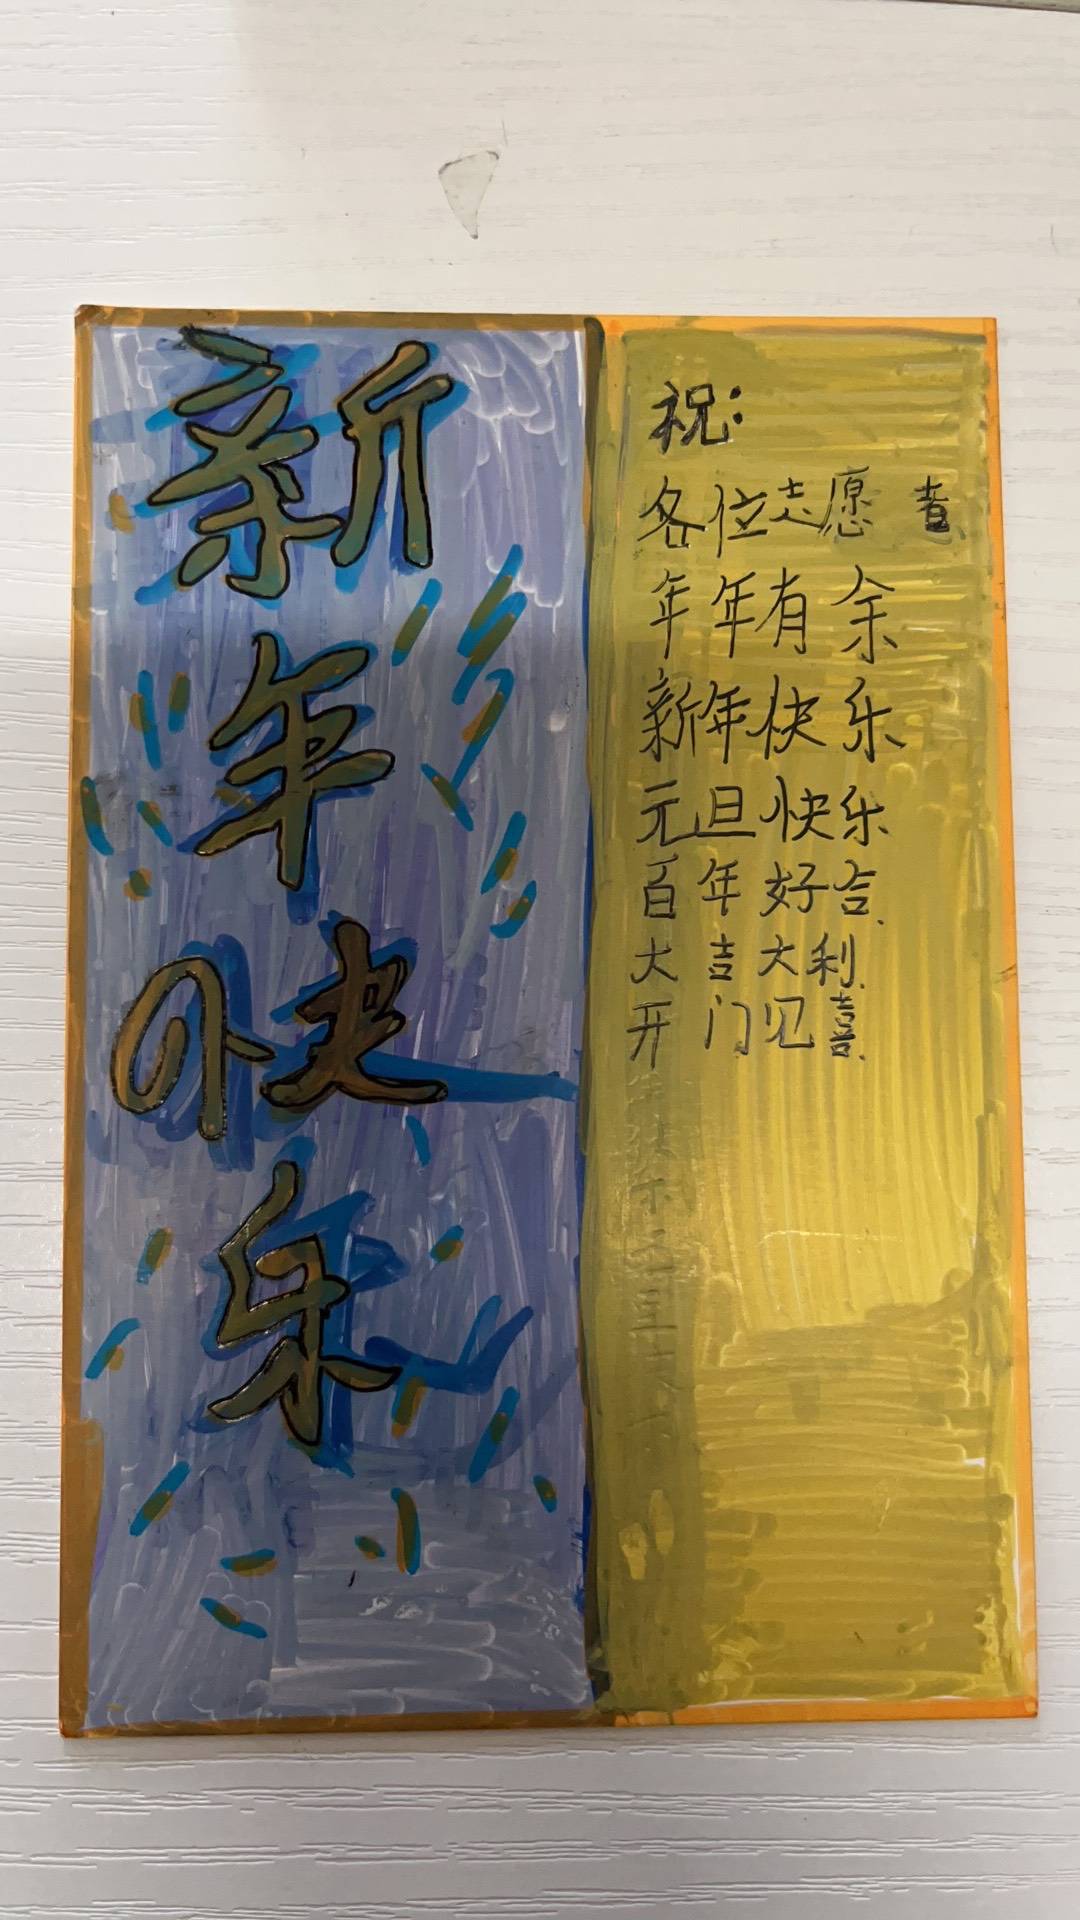 新
年
快
乐
祝：
各位志愿者
年年有余
新年快乐
元旦快乐
百年好合
大吉大利
开门见喜